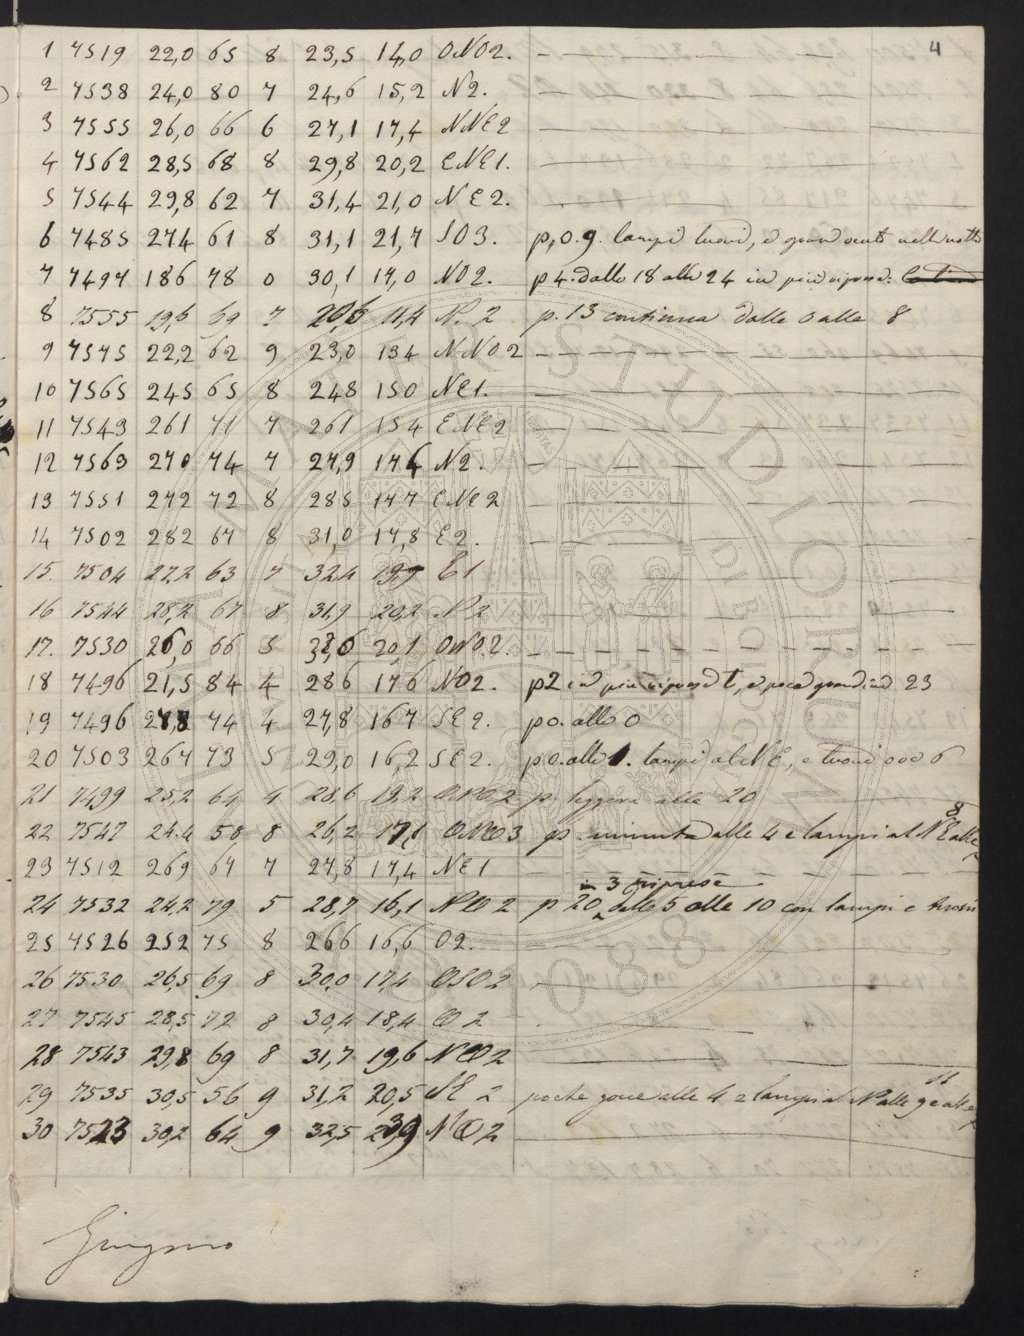 4
1 7519 22,0 65 8 23,5 14,0 ONO2. —
2 7538 24,0 80 7 24,6 15,2 N2. —
3 7555 26,0 66 6 27,1 17,4 NNE2 —
4 7562 28,5 68 8 29,8 20,2 ENE1. —
5 7544 29,8 62 7 31,4 21,0 NE2. —
6 7485 274 61 8 31,1 21,7 SO3. p. 0.9. lampi tuoni, e gran vento nella notte
7 7497 186 78 0 30,1 17,0 NO2. p 4. dalle 18 alle 24 in più riprese.
8 7555 19,6 69 7 20,6 11,4 N. 2 p. 13 continua dalle 0 alle 8
9 7575 22,2 62 9 23,0 134 NNO2 —
10 7565 245 65 8 248 150 NE1. —
11 7543 261 71 7 261 154 ENE2 —
12 7569 270 74 7 27,9 176 N2. —
13 7551 272 72 8 285 177 ENE2 —
14 7502 282 67 8 31,0 17,8 E2. —
15. 7504 27,2 63 7 32,4 19,9 E1 —
16 7544 28,2 67 8 31,9 20,2 N2 —
17. 7530 26,0 66 8 20,1 ONO2. —
18 7496 21,5 84 4 286 176 NO2. p2 in più riprese, e poca grandine 23
19 7496 74 4 27,8 167 SE2. p 0. alle 0
20 7503 264 73 5 29,0 16,2 SE2. p 0. alle 1. lampi al NE, e tuoni 6
21 7499 25,2 64 4 28,6 19,2 ONO2 p. leggera alle 20
22 7547 24.4 58 8 26,2 17,1 ONO3 p minuta alle 4 e lampi al NE alle 8
23 7512 269 67 7 27,8 17,4 NE1 —
in 3 riprese
24 7532 24,2 79 5 28,7 16,1 NO2 p 20 dalle 5 alle 10 con lampi e tuoni
25 7526 252 75 8 266 16,6 O2. —
26 7530 26,5 69 8 30,0 17,4 OSO2 —
27 7545 28,5 72 8 30,4 18,4 O2
28 7543 29,8 69 8 31,7 19,6 NO2 —
29 7535 30,5 56 9 31,2 20,5 NE 2 poche gocce alle 4 e lampi al N alle 9 e alle 11
30 7523 30,2 64 9 32,5 NO2 —
Giugno
ALMA MATER STUDIORUM
A.D. 1088